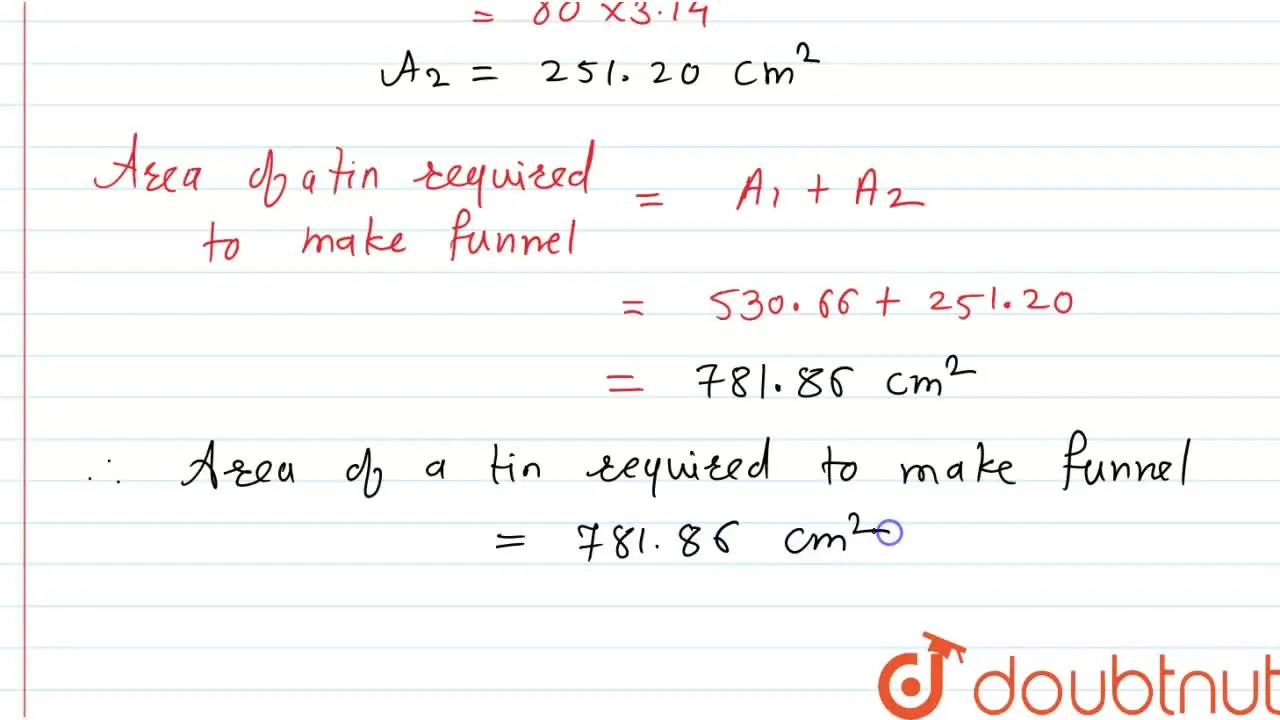 = 80 × 3.14
A2 = 251.20 cm²
Area of a tin required
to make funnel
= A1 + A2
= 530.66 + 251.20
= 781.86 cm²
∴ Area of a tin required to make funnel
= 781.86 cm²
doubtnut